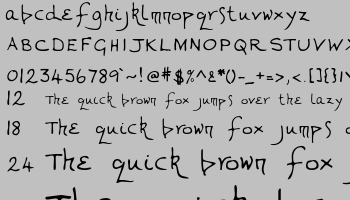 abcdefghijklmnopqrstuvwxyz
ABCDEFGHIJKLMNOPQRSTUVWX
0123456789`~!@#$%^&*()-_+=>,<.[]{}|\
12 The quick brown fox jumps over the lazy
18 The quick brown fox jumps
24 The quick brown fox